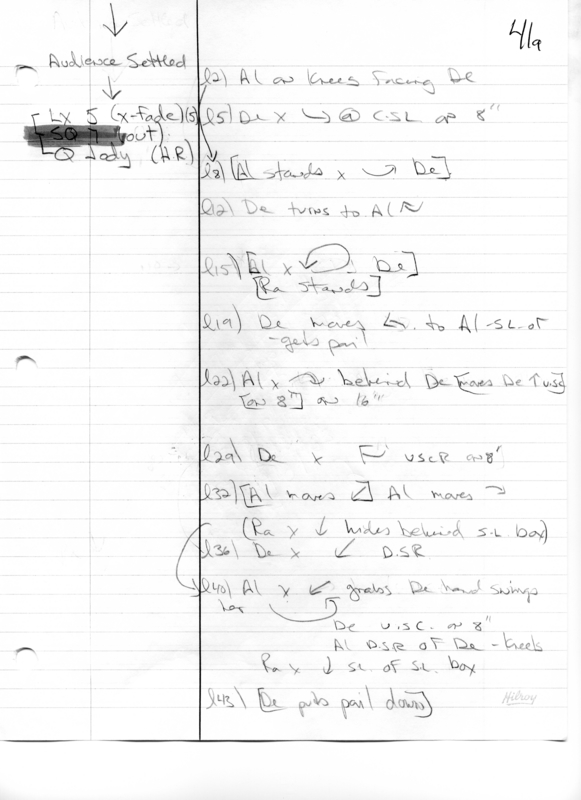 41a
Audience Settled
[Lx 5 (x-fade)(5)
SQ 7 (out)
Q Jody (HR)
l2) Al on Knees Facing De
l5) De x ↪ @ C.SL on 8"
l8) [Al stands x De]
l12) De turns to Al
l15) [Al x De]
[Ra stands]
l19) De moves to Al - SL. of
- gets pail
l22) Al x behind De [moves De ↑ usc]
[on 8"] on 16"
l29) De x USCR on 8"
l32) [Al moves] Al moves
(Ra x ↓ hides behind S.L box)
l36) De x ↙ D.SR
l40) Al x ↙ grabs De hand swings
her
De U.SC. on 8"
Al D.SR OF De - Kneels
Ra x ↓ SL. of SL. box
l43) [De puts pail down]
Hilroy